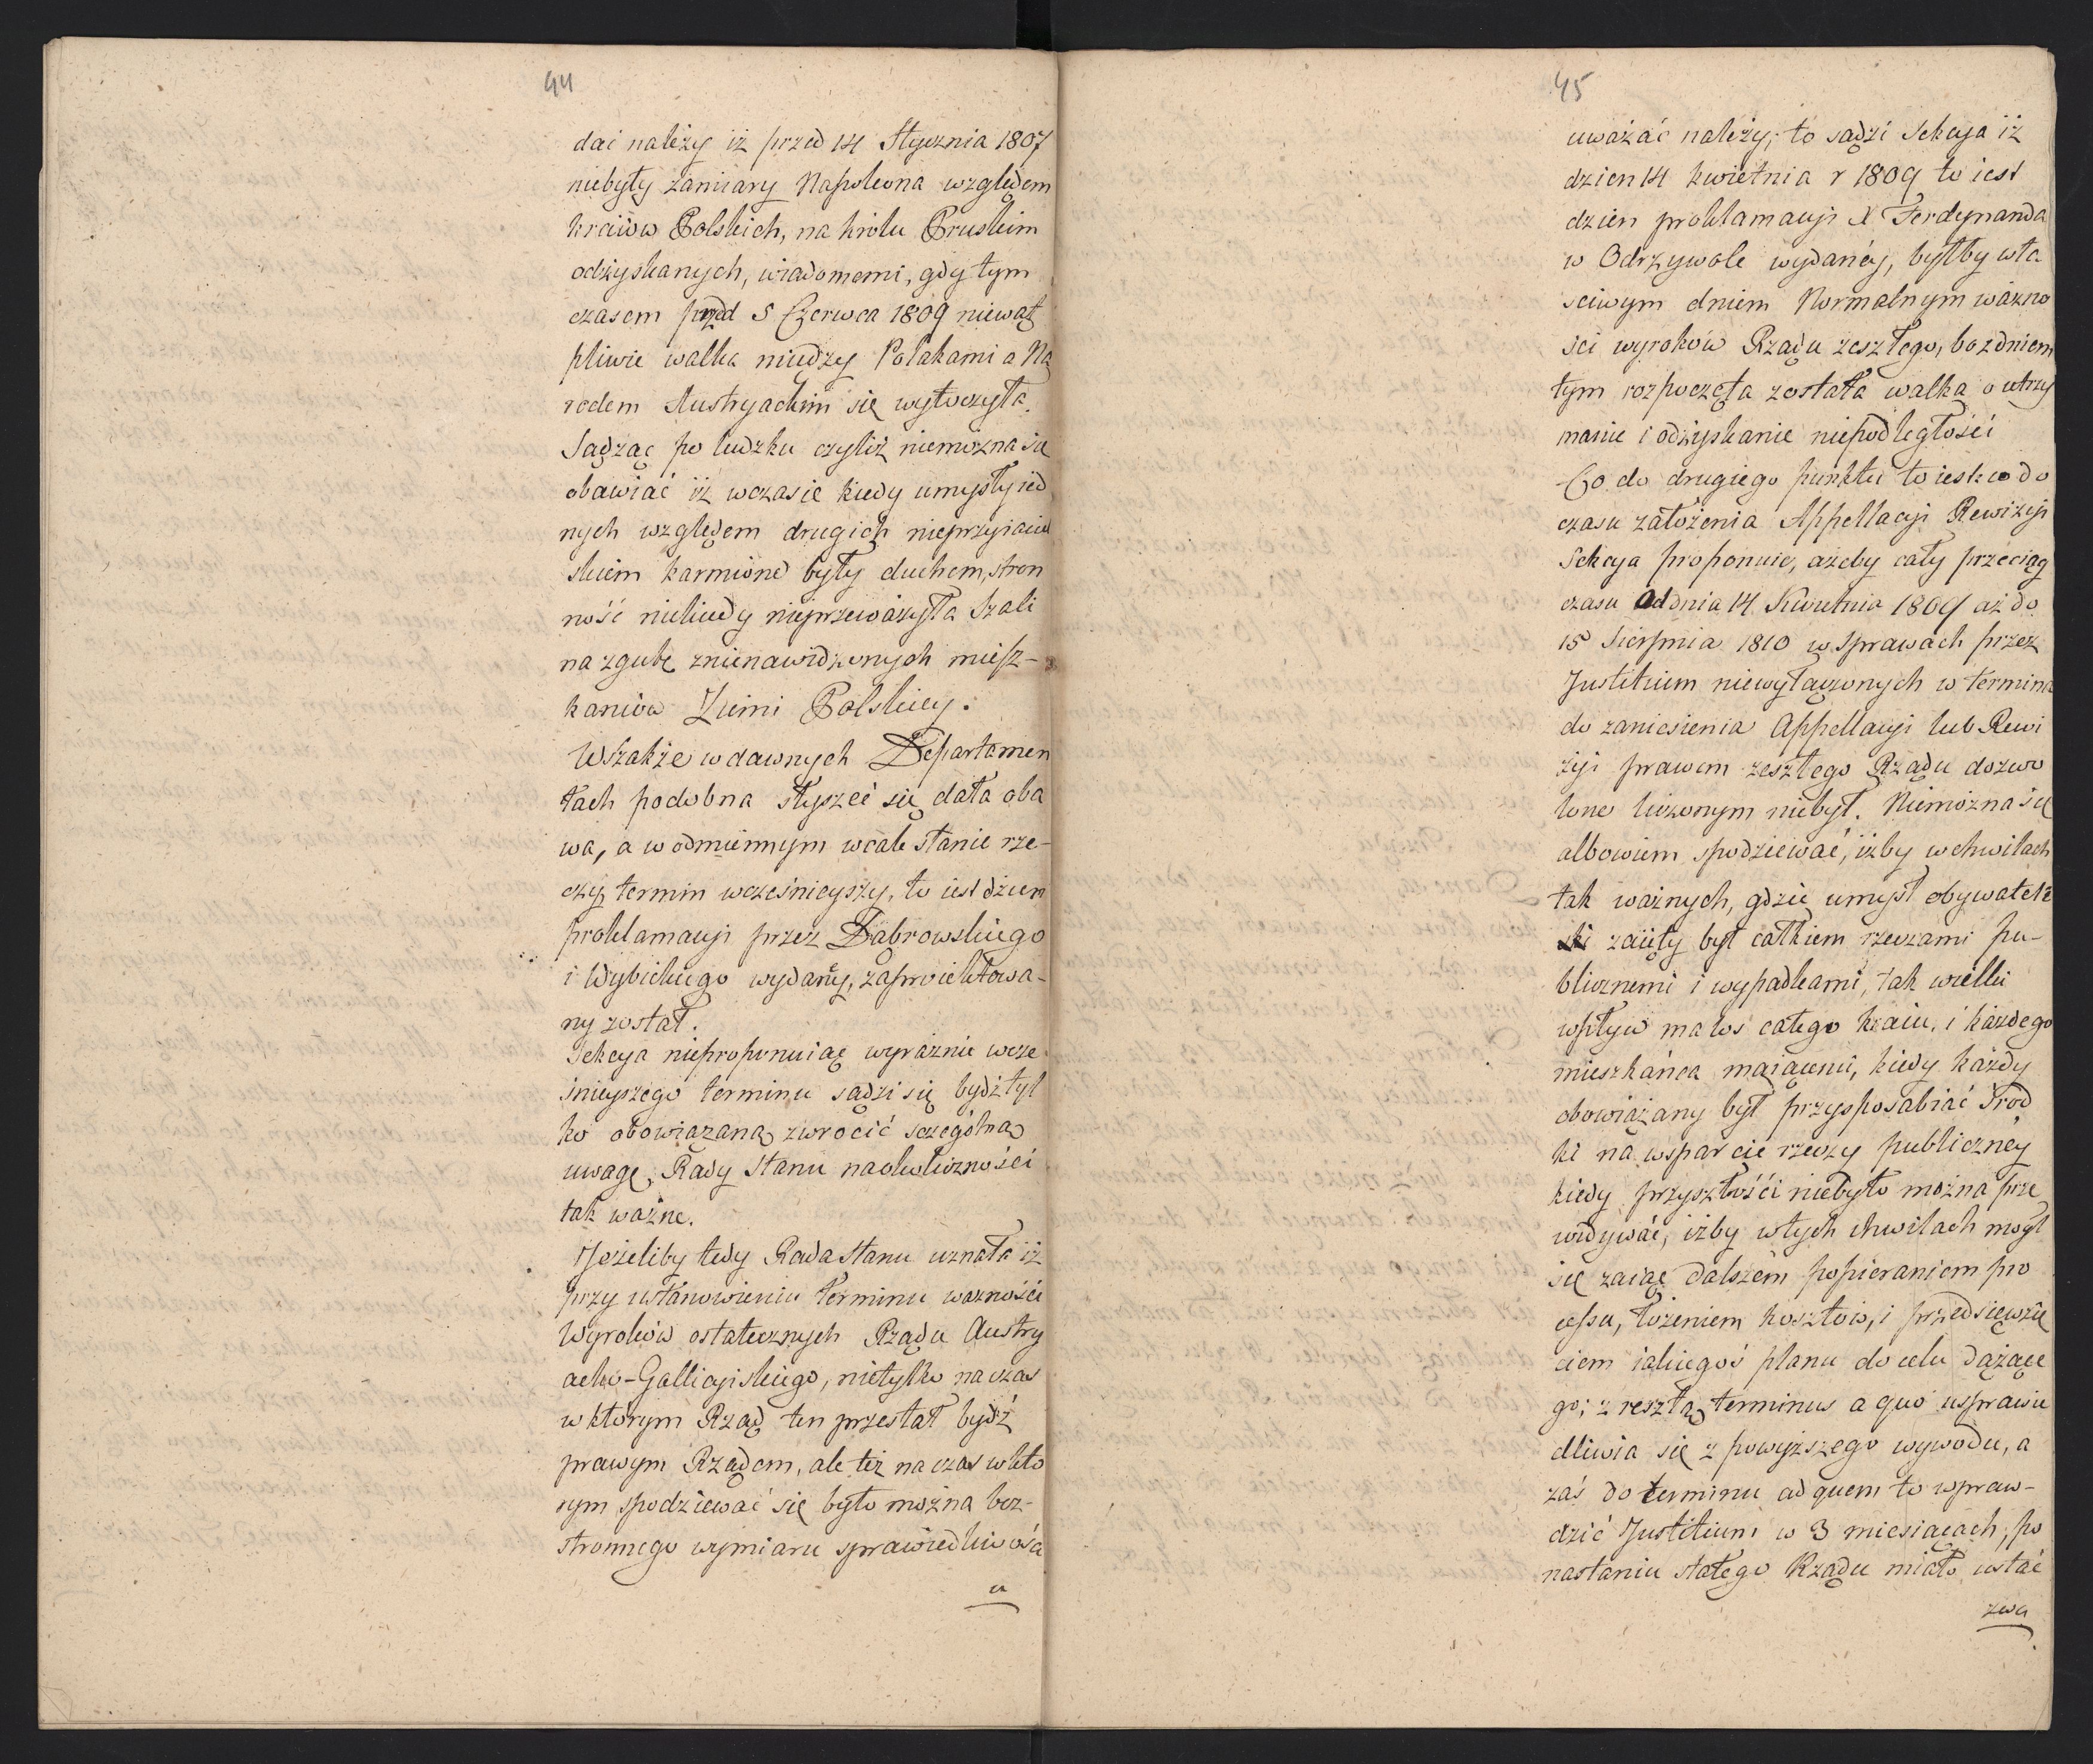 44
dać należy iż przed 14 Stycznia 1807
niebyły zamiary Napoleona względem
kraiów Polskich, na królu Pruskim
odzyskanych, wiadomemi, gdy tym
czasem przed 5 Czerwca 1809 niewąt
pliwie walka między Polakami a Na
rodem Austryackim się wytoczyła.
Sądząc po ludzku czyliż niemożna się
obawiać iż wczasie kiedy umysły ied
nych względem drugich nieprzyiaciel
skiem karmione były duchem, stron
ność niekiedy nieprzeważyła Szali
na zgubę znienawidzonych miesz-
kańców Ziemi Polskiey.
Wszakże w dawnych Departamen
tach podobna słyszeć się dała oba
wa, a w odmiennym wcale stanie rze-
czy, termin wcześnieyszy, to iest dzien
proklamacyi przez Dąbrowskiego
i Wybickiego wydaney, zaproiektowa-
ny został.
Sekcya nieproponuiąc wyraźnie wcze
śnieyszego terminu sądzi się bydź tyl
ko obowiązaną zwrócić sczególną
uwagę, Rady Stanu na okoliczności
tak ważne.
Jeżeliby tedy Rada Stanu uznała iż
przy ustanowieniu terminu ważności
Wyroków ostatecznych Rządu Austry
acko-Gallicyiskiego, nietylko na czas
w którym Rząd ten przestał bydź
prawym Rządem, ale też na czas w któ
rym spodziewać się było można bez-
stronnego wymiaru sprawiedliwości
u
45
uważać należy; to sądzi Sekcya iż
dzien 14 kwietnia r 1809 to iest
dzien proklamacyi X Ferdynanda
w Odrzywole wydanéy, byłby wła
ściwym dniem Normalnym ważno
ści wyroków Rządu zeszłego, bo z dniem
tym rozpoczęta została walka o utrzy
manie i odzyskanie niepodległości
Co do drugiego punktu to iest co do
czasu założenia Appellacyi Rewizyi
Sekcya proponuie, ażeby cały przeciąg
czasu Od dnia 14 Kwietnia 1809 aż do
15 Sierpnia 1810 w Sprawach przez
Justitium niewyłączonych w termina
do zaniesienia Appellacyi lub Rewi
zyi prawem zeszłego Rządu dozwo
lone liczonym niebył. Niemożna się
albowiem spodziewać, iżby w chwilach
tak ważnych, gdzie umysł obywatel
ski zaięty był całkiem rzeczami pu-
blicznemi i wypadkami, tak wielki
wpływ na los całego kraiu, i każdego
mieszkańca maiącemi, kiedy każdy
obowiązany był przysposabiać środ
ki na wsparcie rzeczy publicznéy
kiedy przyszłości niebyło można prze
widywać, iżby w tych chwilach mógł
się zaiąć dalszem popieraniem pro
cessu, łożeniem kosztów, i przedsięwzię
ciem iakiegoś planu do celu dążące
go; z resztą terminus a quo usprawie
dliwia się z powyższego wywodu, a
zaś do terminu ad quem to wpraw-
dzie Justitium w 3 miesiącach, po
nastaniu stałego Rządu miało ustać
zwa